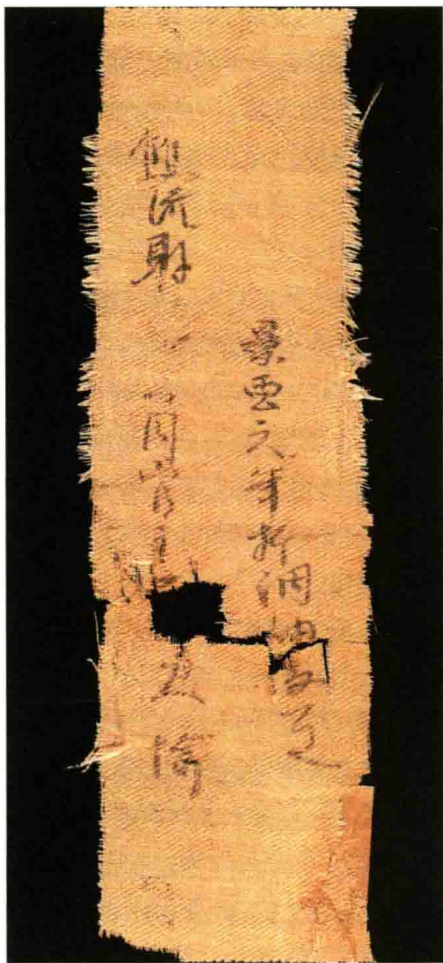 景雲元年折調細綾一疋
雙流縣 八月官主 史渝